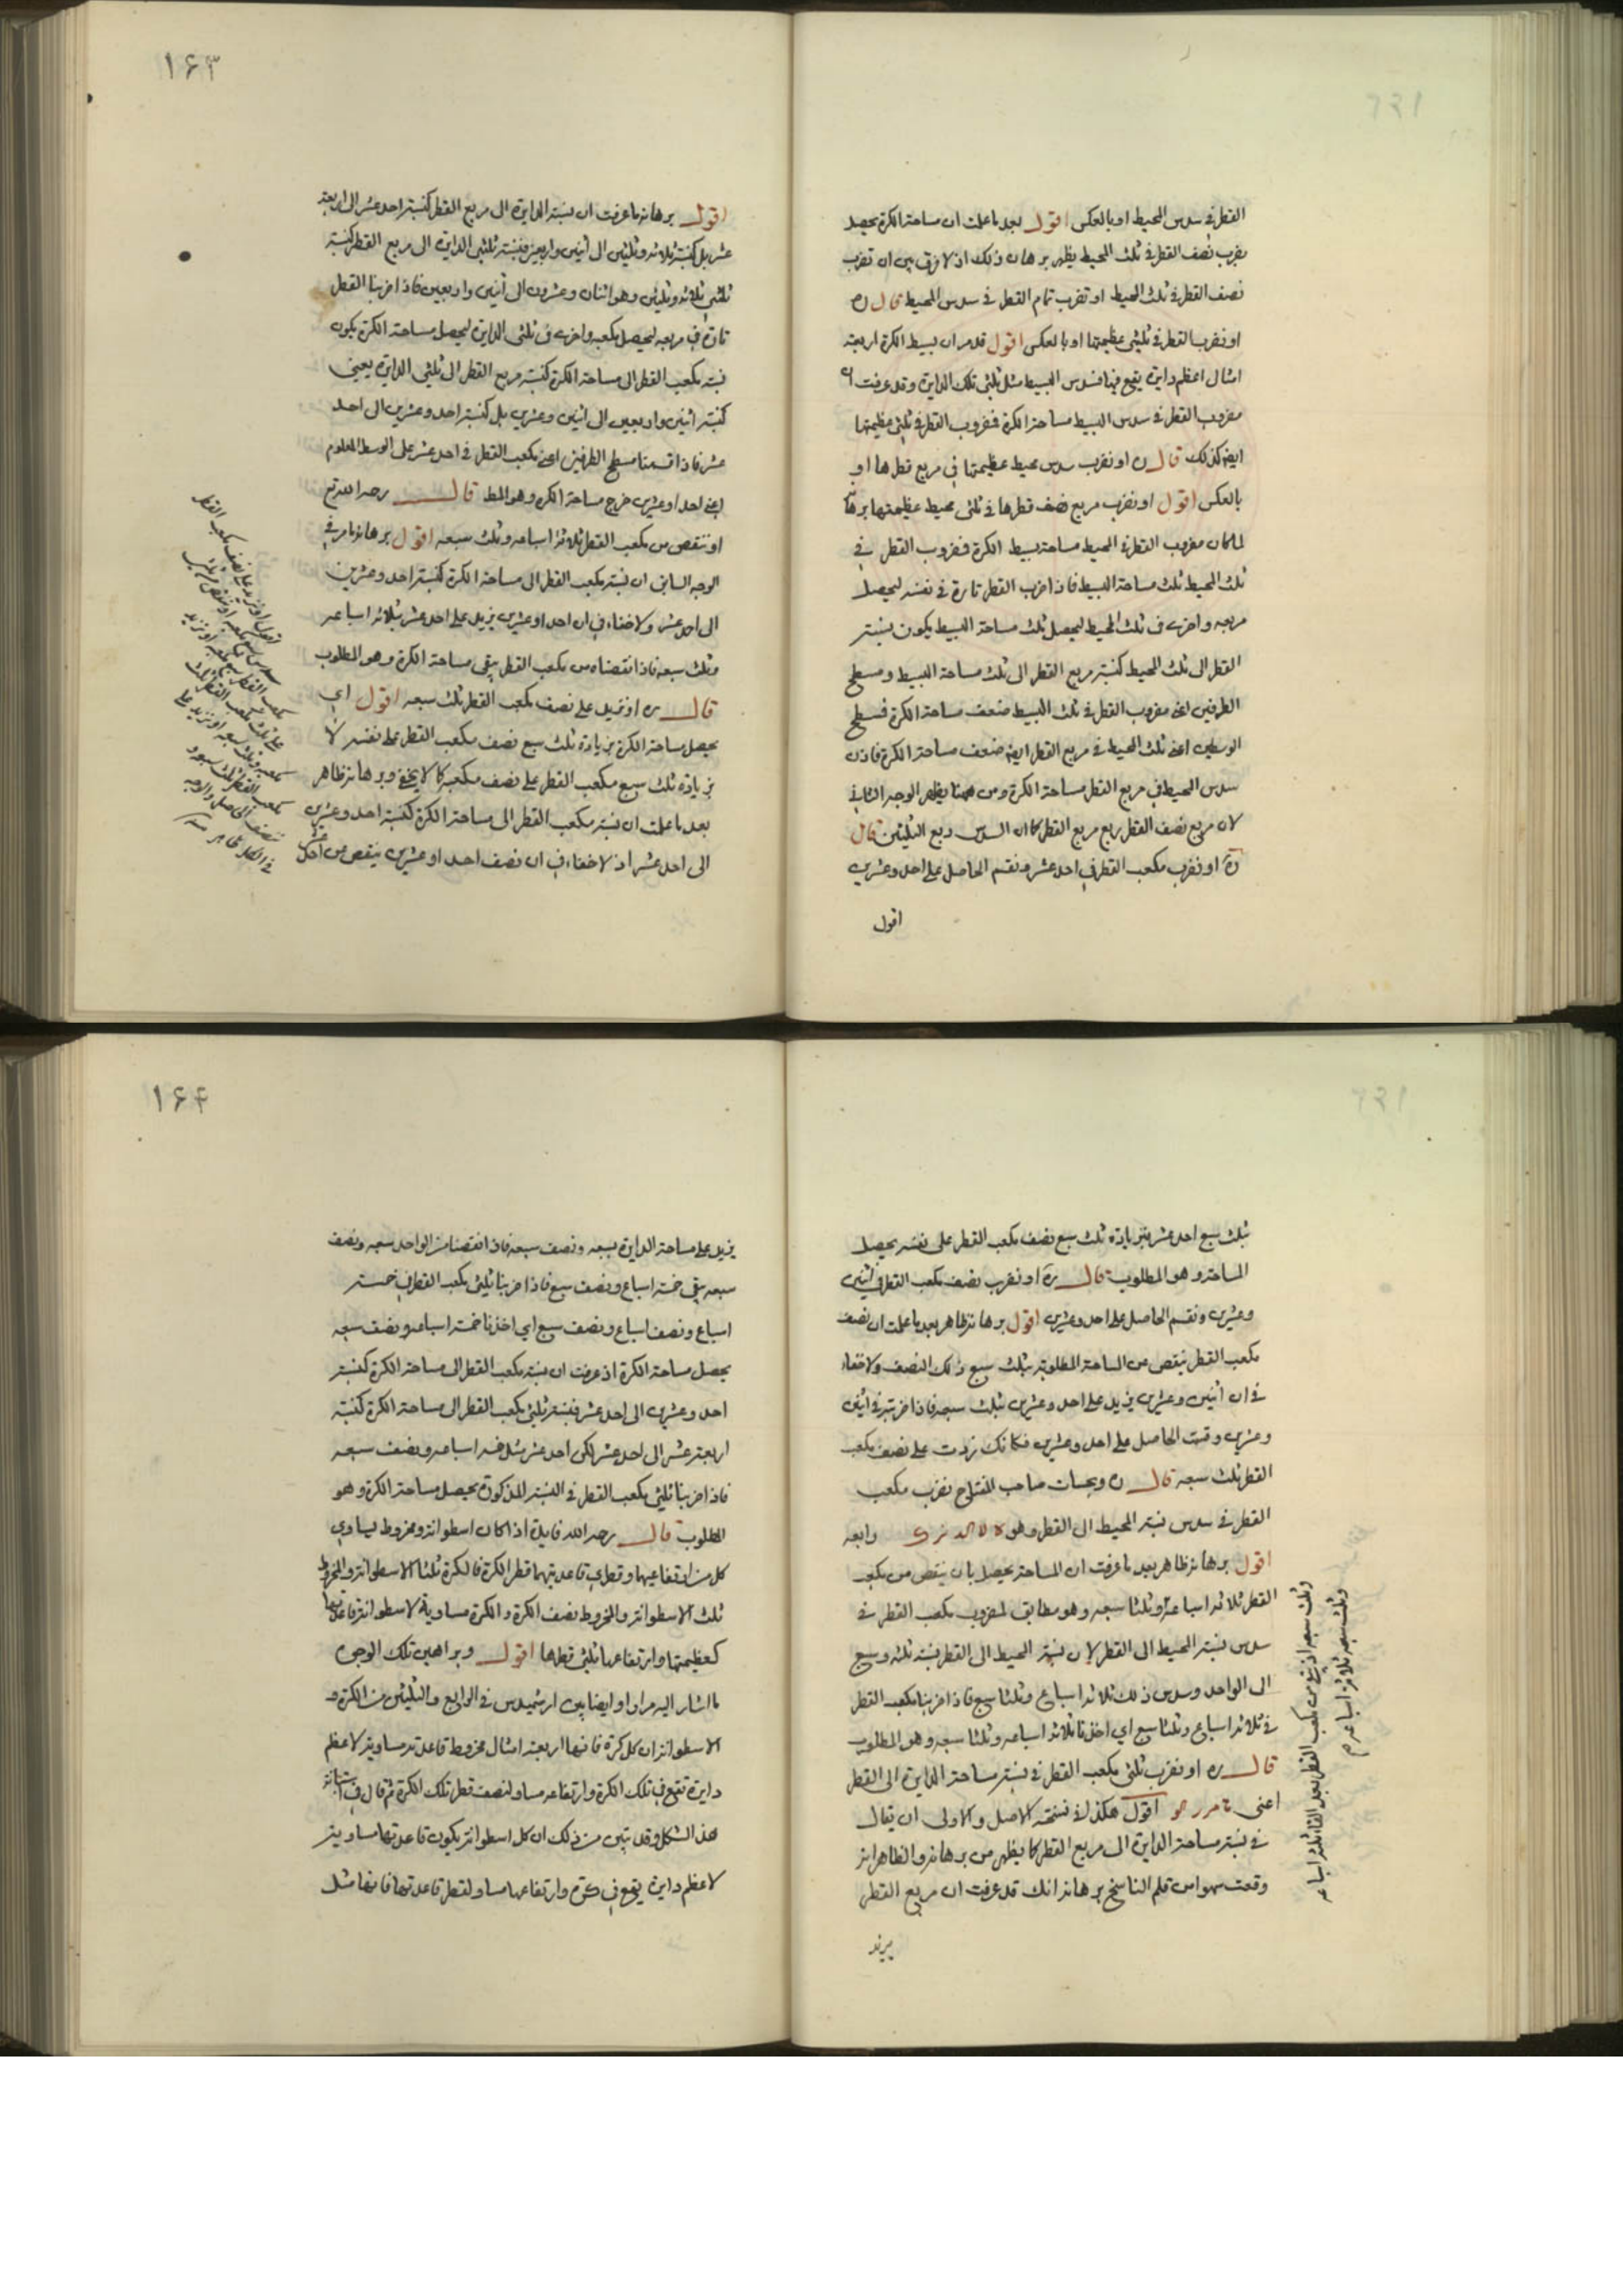 القطر في سدس المحيط او بالعكس اقول بعد ما علمت ان مساحة الكرة يحصل
بضرب نصف القطر في ثلث المحيط يظهر برهان ذلك اذ لا فرق بين ان تضرب
نصف القطر في ثلث المحيط او تضرب تمام القطر في سدس المحيط قال ره
او نضرب القطر في ثلثي عظيمتها او بالعكس اقول قد مر ان بسيط الكرة اربعة
امثال اعظم دايرة يقع فيها فسدس البسيط مثل ثلثي تلك الدايرة وقد عرفت ان
مضروب القطر في سدس البسيط مساحة الكرة فمضروب القطر في ثلثي عظيمتها
ايضا كذلك قال ره او نضرب سدس محيط عظيمتها في مربع قطرها او
بالعكس اقول او نضرب مربع نصف قطرها في ثلثي محيط عظيمتها برهانه
لما كان مضروب القطر في المحيط مساحة بسيط الكرة فمضروب القطر في
ثلث المحيط ثلث مساحة البسيط فاذا ضرب القطر تارة في نفسه ليحصل
مربعه واخرى في ثلث المحيط ليحصل ثلث مساحة البسيط يكون نسبة
القطر الى ثلث المحيط كنسبة مربع القطر الى ثلث مساحة البسيط ومسطح
الطرفين اعني مضروب القطر في ثلث البسيط ضعف مساحة الكرة فمسطح
الوسطين اعني ثلث المحيط في مربع القطر ايضا ضعف مساحة الكرة فاذن
سدس المحيط في مربع القطر مساحة الكرة ومن ههنا يظهر الوجه الثاني
لان مربع نصف القطر ربع مربع القطر كما ان السدس ربع الثلثين قال
ره او نضرب مكعب القطر في احد عشر ونقسم الحاصل على احد وعشرين
اقول
١۶۳
اقول برهانه ما عرفت ان نسبة الدايرة الى مربع القطر كنسبة احد عشر الى اربعة
عشر بل كنسبة ثلاثة وثلثين الى اثنين واربعين فنسبة ثلثي الدايرة الى مربع القطر كنسبة
ثلثي ثلاثة وثلثين وهو اثنان وعشرون الى اثنين واربعين فاذا ضربنا القطر
تارة في مربعه ليحصل مكعبه واخرى في ثلثي الدايرة ليحصل مساحة الكرة يكون
نسبة مكعب القطر الى مساحة الكرة كنسبة مربع القطر الى ثلثي الدايرة يعني
كنسبة اثنين واربعين الى اثنين وعشرين بل كنسبة احد وعشرين الى احد
عشر فاذا قسمنا مسطح الطرفين اعني مكعب القطر في احد عشر على الوسط المعلوم
اعني احدا وعشرين خرج مساحة الكرة وهو المط قال رحمه الله تع
او ننقص من مكعب القطر ثلاثة اسباعه وثلث سبعه اقول برهانه ما مر في
الوجه السابق ان نسبة مكعب القطر الى مساحة الكرة كنسبة احد وعشرين
الى احد عشر ولا خفاء في ان احدا وعشرين يزيد على احد عشر بثلاثة اسباعه
وثلث سبعه فاذا نقصناه من مكعب القطر يبقى مساحة الكرة وهو المطلوب
قال ره او نزيد على نصف مكعب القطر ثلث سبعه اقول اي
يحصل مساحة الكرة بزيادة ثلث سبع نصف مكعب القطر على نفسه لا
بزيادة ثلث سبع مكعب القطر على نصف مكعبه كما لا يخفى وبرهانه ظاهر
بعد ما علمت ان نسبة مكعب القطر الى مساحة الكرة كنسبة احد وعشرين
الى احد عشر اذ لا خفاء في ان نصف احد وعشرين ينقص من احد عشر
بثلث سبع احد عشر فبزيادة ثلث سبع نصف مكعب القطر على نفسه يحصل
المساحة وهو المطلوب قال ره او نضرب نصف مكعب القطر في اثنين
وعشرين ونقسم الحاصل على احد وعشرين اقول برهانه ظاهر بعد ما علمت ان نصف
مكعب القطر ينقص عن المساحة المطلوبة بثلث سبع ذلك النصف ولا خفاء
في ان اثنين وعشرين يزيد على احد وعشرين بثلث سبعه فاذا ضربته في اثنين
وعشرين وقسمت الحاصل على احد وعشرين فكانك زدت على نصف مكعب
القطر ثلث سبعه قال ره وبحساب صاحب المفتاح نضرب مكعب
القطر في سدس نسبة المحيط الى القطر وهو رابعه
اقول برهانه ظاهر بعد ما عرفت ان المساحة يحصل بان ينقص من مكعب
القطر ثلاثة اسباعه وثلثا سبعه وهو مطابق لمضروب مكعب القطر في
سدس نسبة المحيط الى القطر لان نسبة المحيط الى القطر نسبة ثلثة وسبع
الى الواحد وسدس ذلك ثلاثة اسباع وثلثا سبع فاذا ضربنا مكعب القطر
في ثلاثة اسباع وثلثا سبع اي اخذنا ثلاثة اسباعه وثلثا سبعه وهو المطلوب
قال ره او نضرب ثلثي مكعب القطر في نسبة مساحة الدايرة الى القطر
اعني اقول هكذا في نسخة الاصل والاولى ان يقال
في نسبة مساحة الدايرة الى مربع القطر كما يظهر من برهانه والظاهر انه
وقعت سهوا من قلم الناسخ برهانه انك قد عرفت ان مربع القطر
يزيد
وثلث سبعه اذ يبقى من مكعب القطر بعد القاء ثلثة اسباعه
وثلث سبعه ثلاثة اسباعه
١۶۴
يزيد على مساحة الدايرة بسبعه ونصف سبعه فاذا نقصنا من الواحد سبعه ونصف
سبعه يبقى خمسة اسباع ونصف سبع فاذا ضربنا ثلثي مكعب القطر في خمسة
اسباع ونصف اسباع ونصف سبع اي اخذنا خمسة اسباعه ونصف سبعه
يحصل مساحة الكرة اذ عرفت ان نسبة مكعب القطر الى مساحة الكرة كنسبة
احد وعشرين الى احد عشر فنسبة ثلثي مكعب القطر الى مساحة الكرة كنسبة
اربعة عشر الى احد عشر لكن احد عشر مثل خمسة اسباعه ونصف سبعه
فاذا ضربنا ثلثي مكعب القطر في النسبة المذكورة يحصل مساحة الكرة وهو
المطلوب قال رحمه الله فايدة اذا كان اسطوانة ومخروط يساوي
كل من ارتفاعيهما وقطري قاعدتيهما قطر الكرة فالكرة ثلثا الاسطوانة والمخروط
ثلث الاسطوانة والمخروط نصف الكرة والكرة مساوية لاسطوانة قاعدتها
كعظيمتها وارتفاعها ثلثي قطرها اقول وبراهين تلك الوجوه
ما اشار اليه مرارا وايضا بين ارشميدس في الرابع والثلثين من الكرة و
الاسطوانة ان كل كرة فانها اربعة امثال مخروط قاعدته مساوية لاعظم
دايرة تقع في تلك الكرة وارتفاعه مساو لنصف قطر تلك الكرة ثم قال في استبانة
هذا الشكل وقد تبين من ذلك ان كل اسطوانة يكون قاعدتها مساوية
لاعظم دايرة يقع في كرة وارتفاعها مساو لقطر قاعدتها فانها مثل